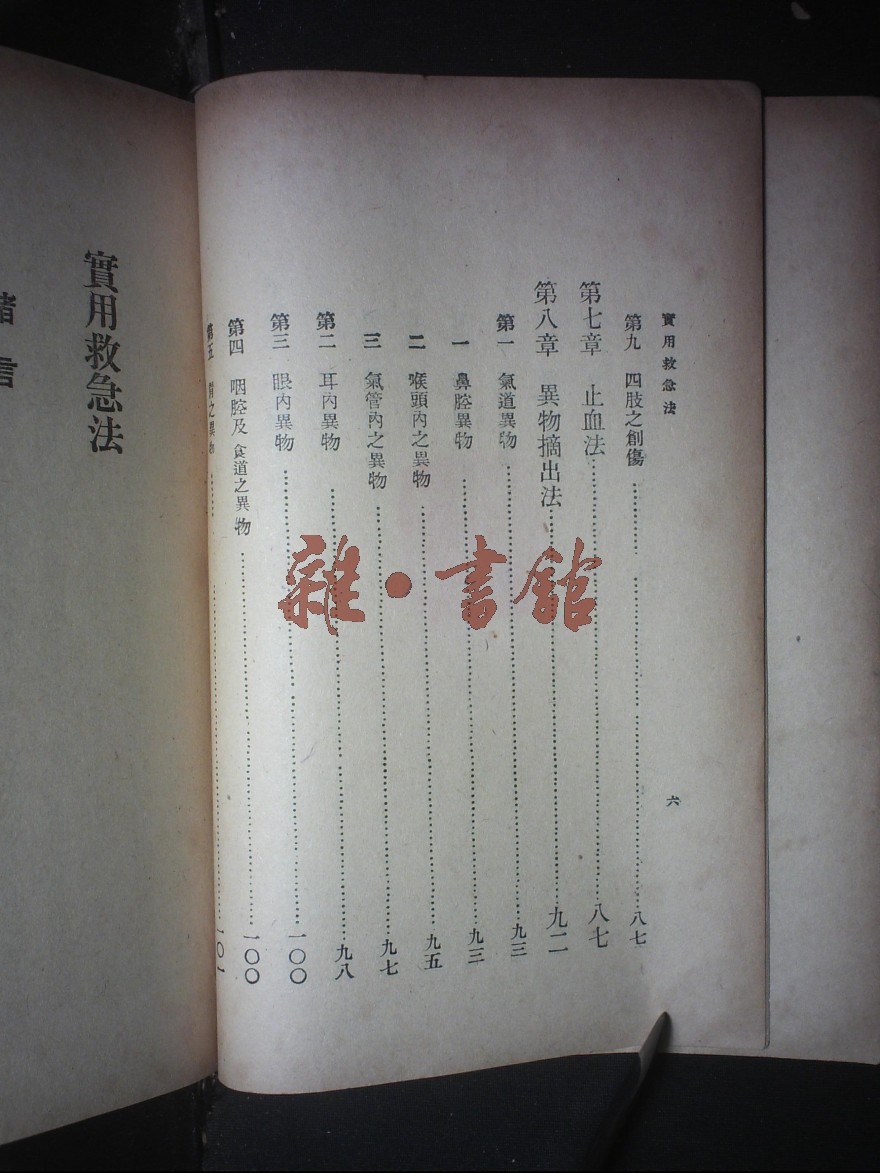 實用救急法
六
第九 四肢之創傷 八七
第七章 止血法 八七
第八章 異物摘出法 九二
第一 氣道異物 九三
一 鼻腔異物 九三
二 喉頭內之異物 九五
三 氣管內之異物 九七
第二 耳內異物 九八
第三 眼內異物 一〇〇
第四 咽腔及食道之異物 一〇〇
第五 之異物 一〇一
實用救急法
緒言
雜·書館